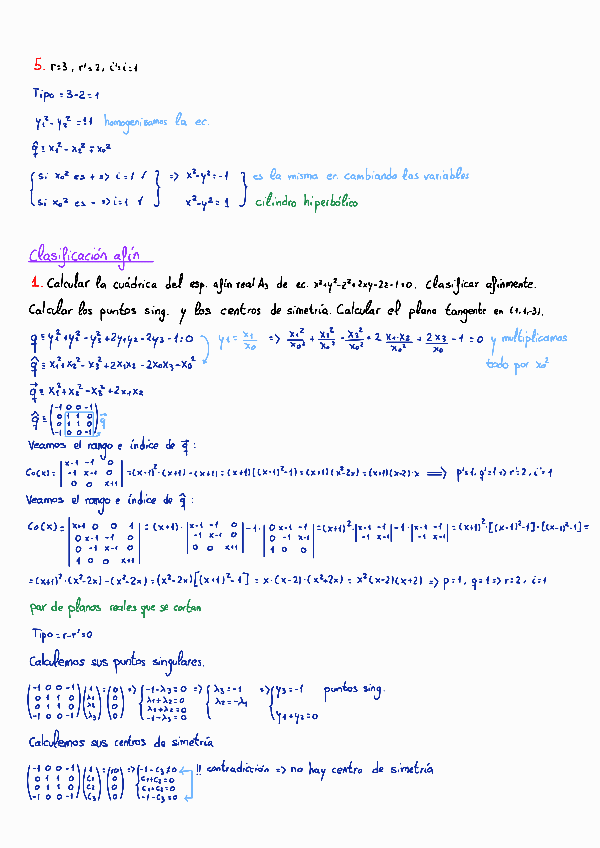 5. r=3, r'=2, i'=i=1
Tipo = 3-2=1
y₁²-y₂² = ±1 homogenizamos la ec.
q̂ = x₁²-x₂² = x₀²
{ si x₀² es + => i=1 ✓ } => x²-y²=-1 } es la misma en cambiando las variables
{ si x₀² es - => i=1 ✓ } x²-y²=1 } cilindro hiperbólico
Clasificación afín
1. Calcular la cuádrica del esp. afín real A₃ de ec. x²+y²-z²+2xy-2z-1=0. Clasificar afinmente.
Calcular los puntos sing. y los centros de simetría. Calcular el plano tangente en (1,1,-3).
q = y₁²+y₂²-y₃²+2y₁y₂-2y₃-1=0 y₁ = x₁/x₀ => x₁²/x₀² + x₂²/x₀² - x₃²/x₀² + 2 x₁·x₂/x₀² + 2x₃/x₀ - 1 = 0 y multiplicamos
q̂ = x₁²+x₂²-x₃²+2x₁x₂-2x₀x₃-x₀² todo por x₀²
q⃗ = x₁²+x₂²-x₃²+2x₁x₂
q̂ = (-1 0 0 -1 / 0 1 1 0 / 0 1 1 0 / -1 0 0 -1) q⃗
Veamos el rango e índice de q⃗:
Co(x) = |x-1 -1 0 / -1 x-1 0 / 0 0 x+1| = (x-1)²·(x+1)-(x+1) = (x+1)[(x-1)²-1] = (x+1)(x²-2x) = (x+1)(x-2)·x => p'=1, q'=1 => r'=2, i'=1
Veamos el rango e índice de q̂:
Co(x) = |x+1 0 0 1 / 0 x-1 -1 0 / 0 -1 x-1 0 / 1 0 0 x+1| = (x+1)·|x-1 -1 0 / -1 x-1 0 / 0 0 x+1| -1·|0 x-1 -1 / 0 -1 x-1 / 1 0 0| = (x+1)²·|x-1 -1 / -1 x-1| -1·|x-1 -1 / -1 x-1| = (x+1)²·[(x-1)²-1]-[(x-1)²-1] =
= (x+1)²·(x²-2x)-(x²-2x) = (x²-2x)[(x+1)²-1] = x·(x-2)·(x²+2x) = x²(x-2)(x+2) => p=1, q=1 => r=2, i=1
par de planos reales que se cortan
Tipo = r-r'=0
Calculemos sus puntos singulares.
(-1 0 0 -1 / 0 1 1 0 / 0 1 1 0 / -1 0 0 -1)(1 / λ₁ / λ₂ / λ₃) = (0 / 0 / 0 / 0) => {-1-λ₃=0 / λ₁+λ₂=0 / λ₁+λ₂=0 / -1-λ₃=0 => {λ₃=-1 / λ₂=-λ₁ => {y₃=-1 / y₁+y₂=0 puntos sing.
Calculemos sus centros de simetría
(-1 0 0 -1 / 0 1 1 0 / 0 1 1 0 / -1 0 0 -1)(1 / c₁ / c₂ / c₃) = (≠0 / 0 / 0 / 0) => {-1-c₃≠0 / c₁+c₂=0 / c₁+c₂=0 / -1-c₃=0 !! contradicción => no hay centro de simetría